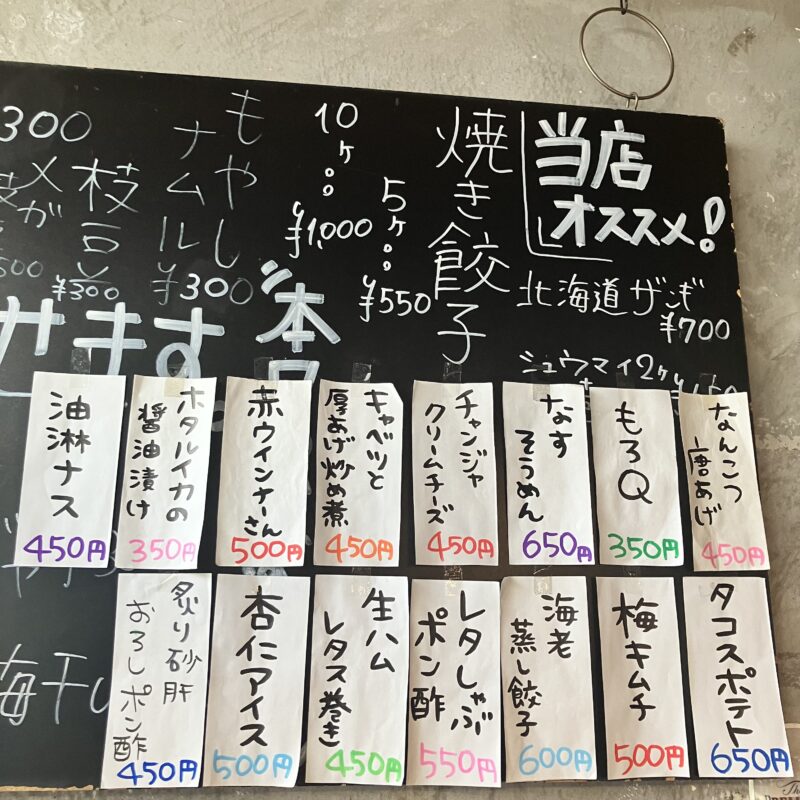 当店
オススメ!
北海道ザンギ
¥700
シュウマイ2ケ
焼き餃子
5ケ
¥550
10ケ
¥1,000
もやし
ナムル
¥300
枝豆
¥300
メガ
300
せます。
なんこつ
唐あげ
450円
もろQ
350円
なす
そうめん
650円
チャンジャ
クリームチーズ
450円
キャベツと
厚あげ炒め煮
450円
赤ウインナーさん
500円
ホタルイカの
醤油漬け
350円
油淋ナス
450円
タコスポテト
650円
梅キムチ
500円
海老
蒸し餃子
600円
レタしゃぶ
ポン酢
550円
生ハム
レタス巻き
450円
杏仁アイス
500円
炙り砂肝
おろしポン酢
450円
梅干し